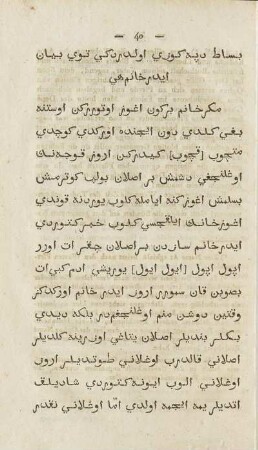 — 40 —
بساط دپه كوزی اولدردكی توی بیان
ایدر خانم هی
مكر خانم بركون اغوز اوتورركن اوستنه
یغی كلدی دون ایچنده اوركدی كوچدی
قچوب [قچوب] كیدركن اروز قوجه نك
اوغلنجغی دشمش بر اصلان بولب كوترمش
بسلمش اغوز كنه ایامله كلوب یوردنه قوندی
اغوز خانك ایلقجسی كلوب خبر كتوردی
ایدر خانم سازدن بر اصلان چقر ات اورر
اپول اپول [ایول ایول] یوریشی ادم كبی ات
بصوبن قان سومرر اروز ایدر خانم اوركدكمز
وقتین دوشن منم اوغلنجغمدر بلكه دیدی
بكلر بندیلر اصلان یتاغی اوزرینه كلدیلر
اصلانی قالدرب اوغلانی طوتدیلر اروز
اوغلانی الوب ایونه كتوردی شادیلق
اتدیلر یمه ایچمه اولدی اما اوغلانی نقدر